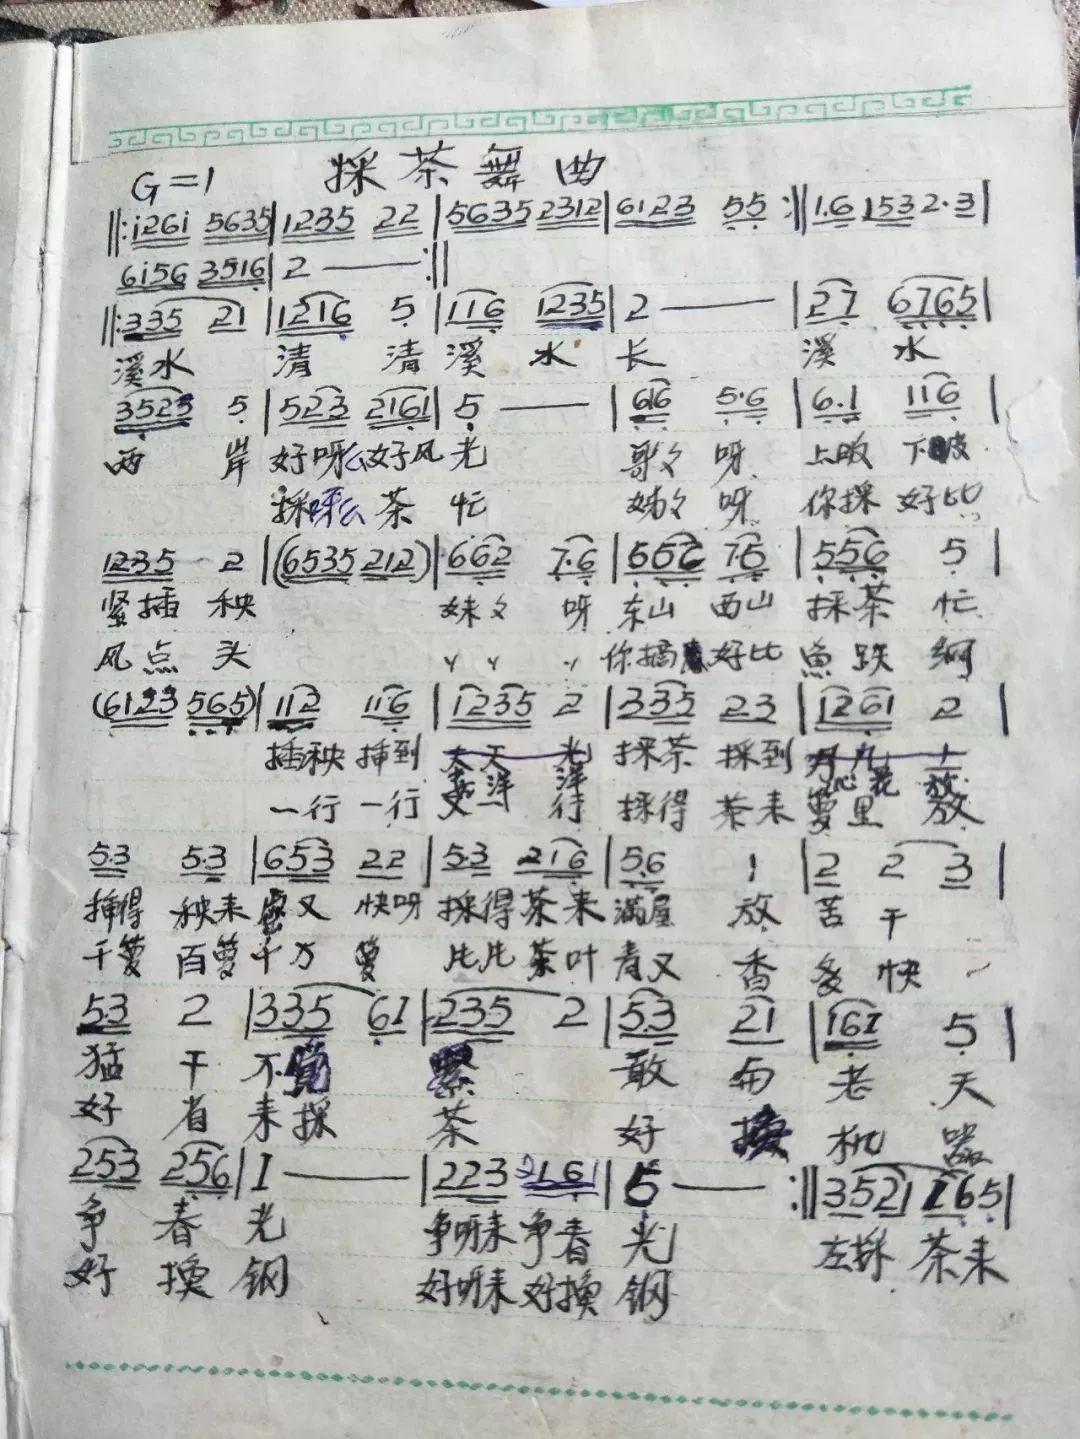 採茶舞曲
G=1
‖:i26i 5635|1235 22|5635 2312|6123 55:‖1.6 153 2.3|
6i56 3516|2 —:‖
‖:335 21|1216 5|116 1235|2 —|27 6765|
溪水 清 清 溪 水 长 溪 水
3523 5|523 2161|5 —|616 5.6|6.1 116|
两 岸 好呀么好风光 哥々 呀 上 下
採呀么 茶 忙 姊々 呀 你採 好比
1235 2|(6535 212)|662 7.6|556 75|556 5
紧插 秧 妹々 呀 东山 西山 採茶 忙
风点 头 〃 〃 〃 你摘 好比 鱼跌 网
(6123 565)|112 116|1235 2|335 23|1261 2|
插秧 插到 採茶 採到 心花 放
一行 一行 又一 行 採得 茶来 萝里 放
53 5.3|653 22|53 216|56 1|2 2 3|
插得 秧来 密又 快呀 採得茶来 满屋 放 苦 干
千萝 百萝千万 萝 片片 茶叶 青又 香 多 快
5.3 2|335 61|235 2|53 21|161 5|
猛 干 不觉 累 敢 向 老 天
好 省 来採 茶 好 换 机 器
253 256|1 —|223 2161|5 —:‖3521 165|
争 春 光 争呀来 争春 光 左採 茶来
好 换 钢 好呀来 好换 钢